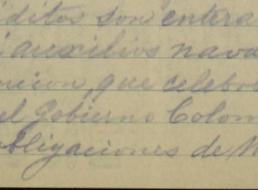 ditos son entera
auxilios nava
ncion, que celebr
el Gobierno Colom
obligaciones de M